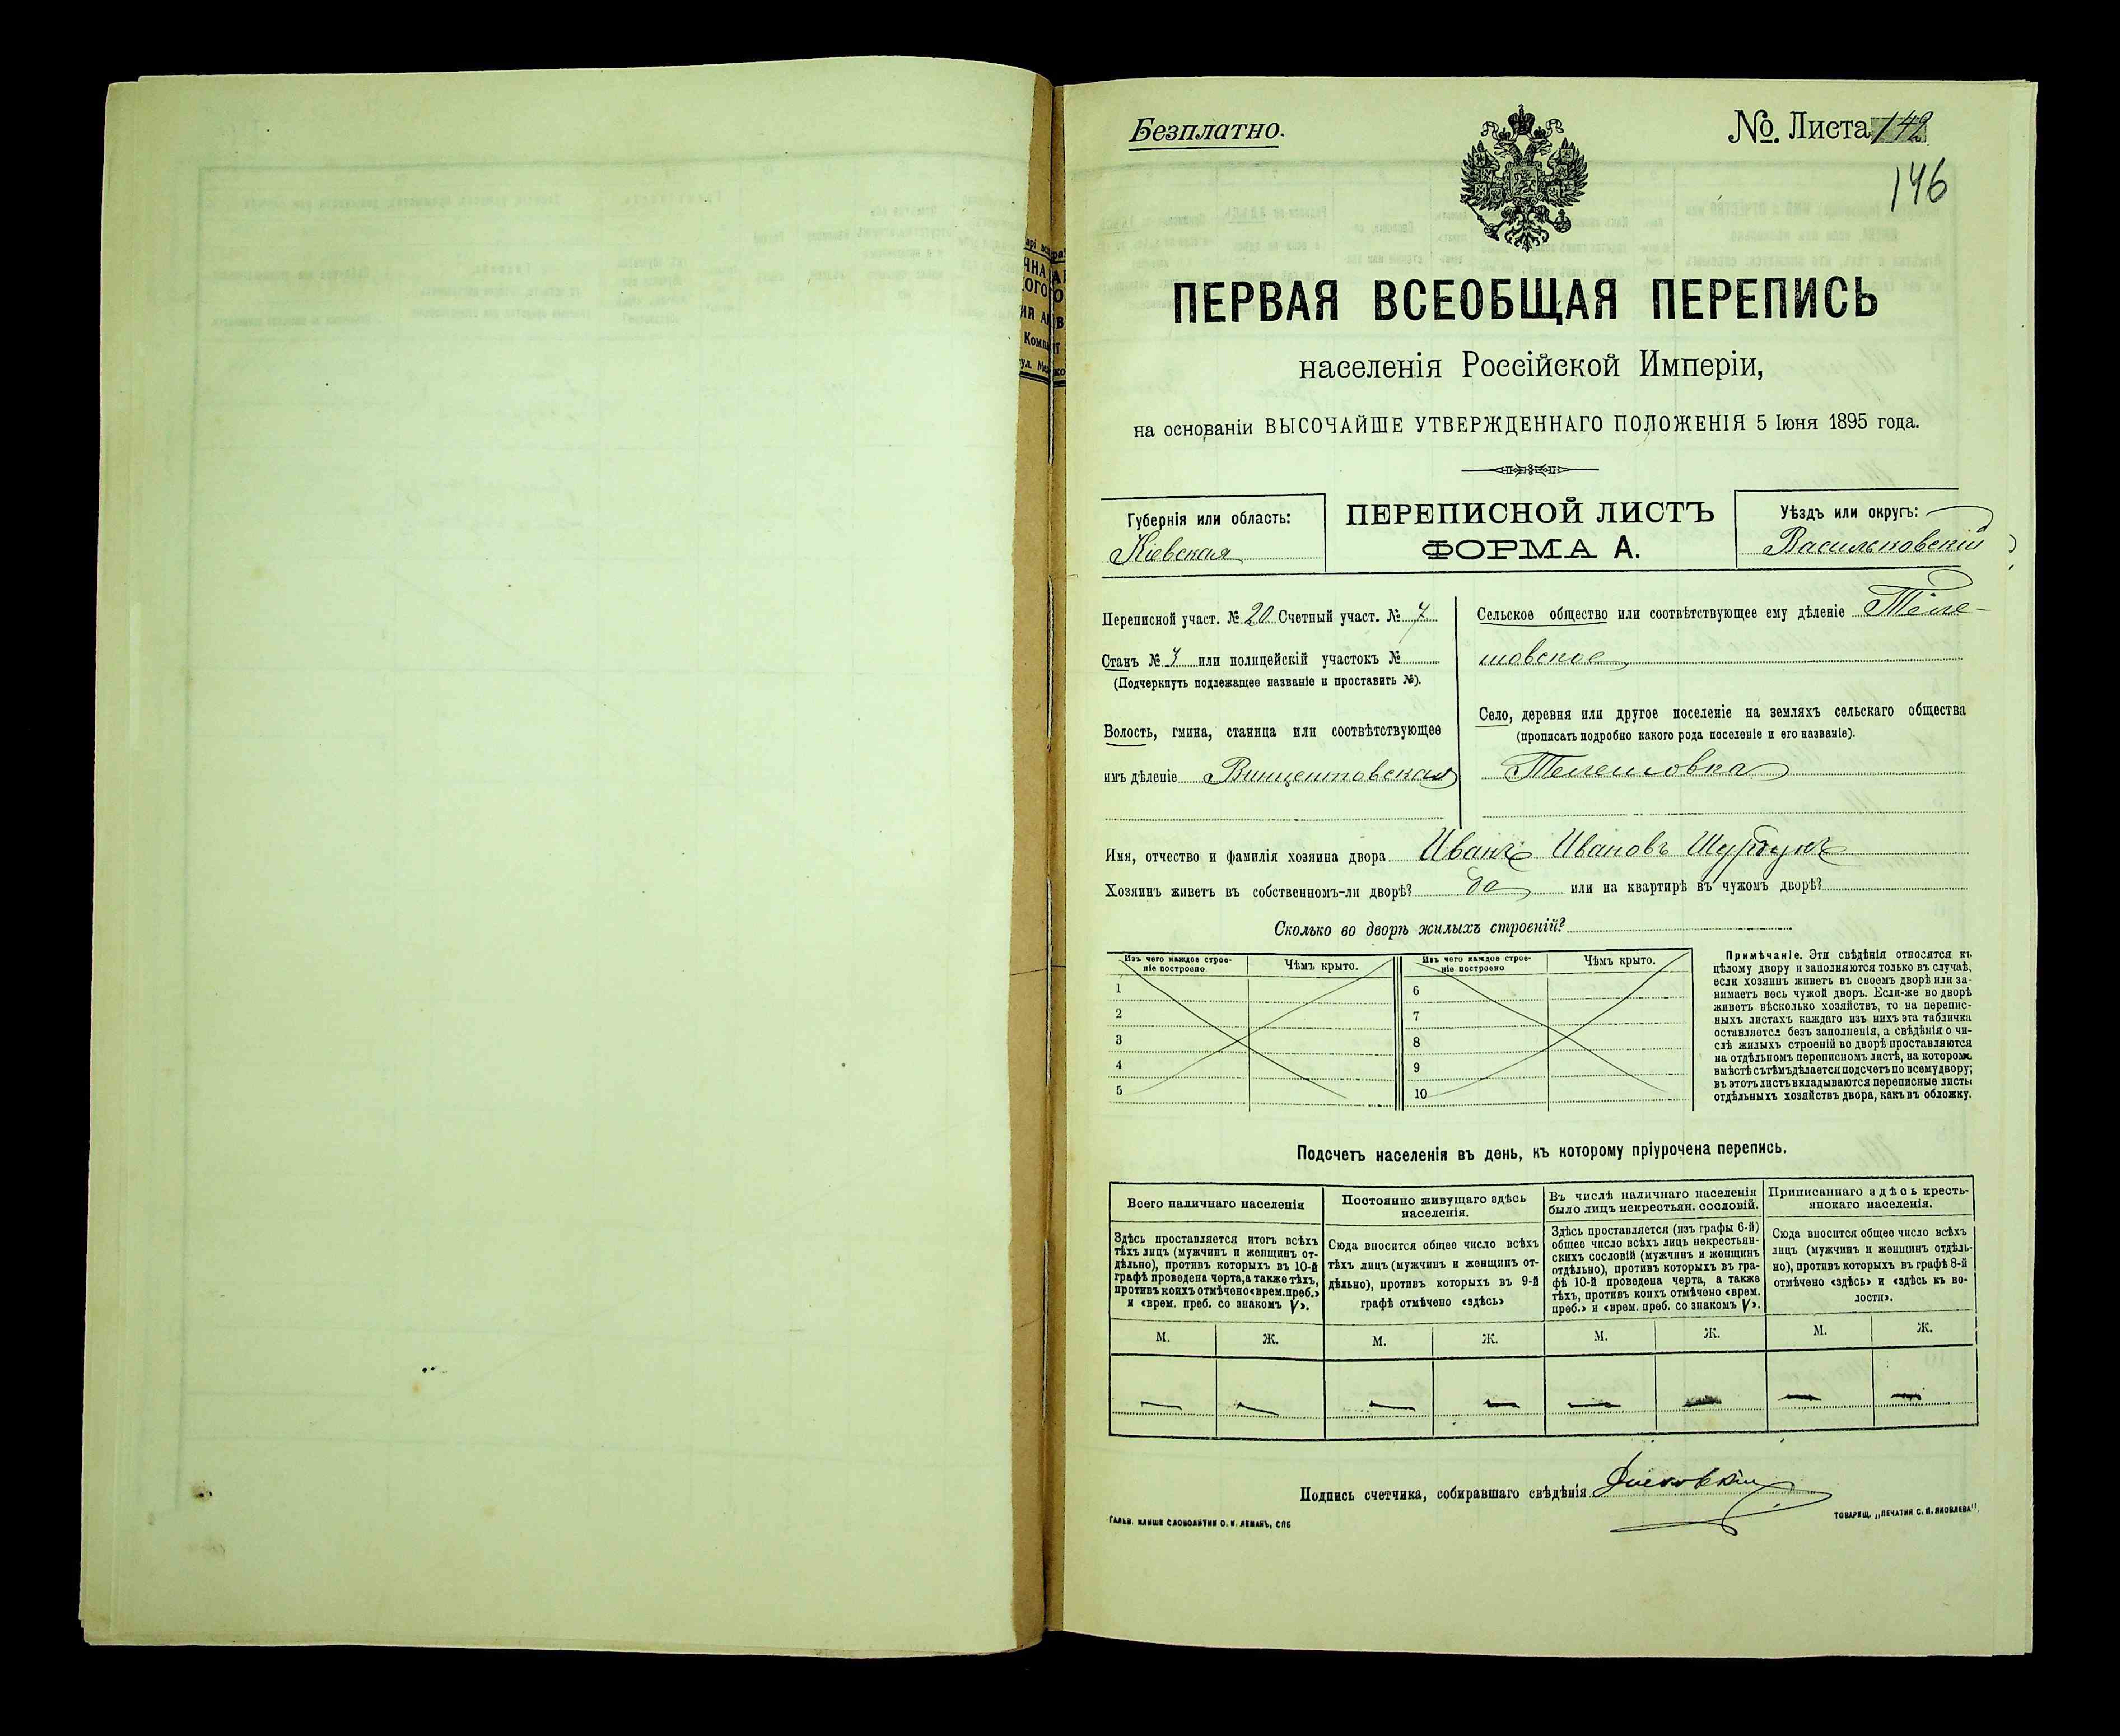 Безплатно.
№. Листа 142
146
ПЕРВАЯ ВСЕОБЩАЯ ПЕРЕПИСЬ
населенія Россійской Имперіи,
на основаніи ВЫСОЧАЙШЕ УТВЕРЖДЕННАГО ПОЛОЖЕНІЯ 5 Іюня 1895 года.
Губернія или область:
Кіевская
ПЕРЕПИСНОЙ ЛИСТЪ
ФОРМА А.
Уѣздъ или округъ:
Васильковскій
Переписной участ. № 20 Счетный участ. № 7
Станъ № или полицейскій участокъ №
(Подчеркнуть подлежащее названіе и проставить №).
Волость, гмина, станица или соотвѣтствующее
имъ дѣленіе Винцентовская
Сельское общество или соотвѣтствующее ему дѣленіе Теле-
шовское
Село, деревня или другое поселеніе на земляхъ сельскаго общества
(прописать подробно какого рода поселеніе и его названіе).
Телешовка
Имя, отчество и фамилія хозяина двора Иванъ Ивановъ
Хозяинъ живетъ въ собственномъ-ли дворѣ? да или на квартирѣ въ чужомъ дворѣ?
Сколько во дворѣ жилыхъ строеній?
Изъ чего каждое строе-
ніе построено
Чѣмъ крыто.
1
2
3
4
5
Изъ чего каждое строе-
ніе построено
Чѣмъ крыто.
6
7
8
9
10
Примѣчаніе. Эти свѣдѣнія относятся къ
цѣлому двору и заполняются только въ случаѣ,
если хозяинъ живетъ въ своемъ дворѣ или за-
нимаетъ весь чужой дворъ. Если-же во дворѣ
живетъ нѣсколько хозяйствъ, то на перепис-
ныхъ листахъ каждаго изъ нихъ эта табличка
оставляется безъ заполненія, а свѣдѣнія о чи-
слѣ жилыхъ строеній во дворѣ проставляются
на отдѣльномъ переписномъ листѣ, на которомъ
вмѣстѣ съ тѣмъ дѣлается подсчетъ по всему двору;
въ этотъ листъ вкладываются переписные листы
отдѣльныхъ хозяйствъ двора, какъ въ обложку.
Подсчетъ населенія въ день, къ которому пріурочена перепись.
Всего наличнаго населенія
Здѣсь проставляется итогъ всѣхъ
тѣхъ лицъ (мужчинъ и женщинъ от-
дѣльно), противъ которыхъ въ 10-й
графѣ проведена черта, а также тѣхъ,
противъ коихъ отмѣчено «врем. преб.»
и «врем. преб. со знакомъ V».
М.
Ж.
Постоянно живущаго здѣсь
населенія.
Сюда вносится общее число всѣхъ
тѣхъ лицъ (мужчинъ и женщинъ от-
дѣльно), противъ которыхъ въ 9-й
графѣ отмѣчено «здѣсь»
М.
Ж.
Въ числѣ наличнаго населенія
было лицъ некрестьян. сословій.
Здѣсь проставляется (изъ графы 6-й)
общее число всѣхъ лицъ некрестьян-
скихъ сословій (мужчинъ и женщинъ
отдѣльно), противъ которыхъ въ гра-
фѣ 10-й проведена черта, а также
тѣхъ, противъ коихъ отмѣчено «врем.
преб.» и «врем. преб. со знакомъ V».
М.
Ж.
Приписаннаго здѣсь кресть-
янскаго населенія.
Сюда вносится общее число всѣхъ
лицъ (мужчинъ и женщинъ отдѣль-
но), противъ которыхъ въ графѣ 8-й
отмѣчено «здѣсь» и «здѣсь къ во-
лости».
М.
Ж.
Подпись счетчика, собиравшаго свѣдѣнія
ГАЛЬВ. КЛИШЕ СЛОВОЛИТНИ О. И. ЛЕМАНЪ, СПБ
ТОВАРИЩ. „ПЕЧАТНЯ С. П. ЯКОВЛЕВА“.